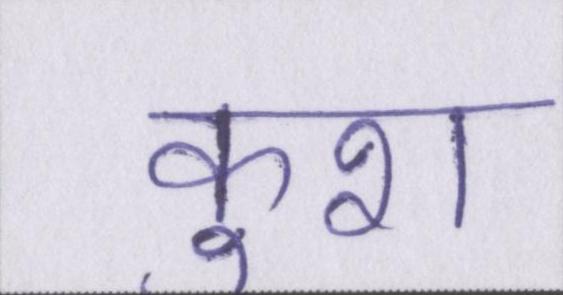 कुश